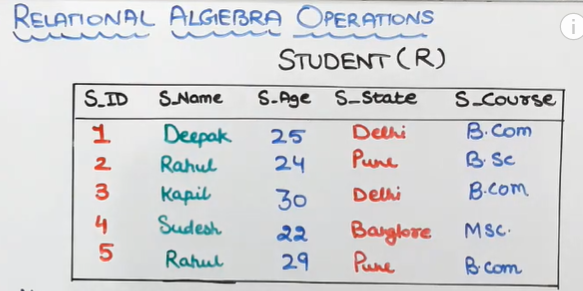 RELATIONAL ALGEBRA OPERATIONS
STUDENT (R)
S_ID S_Name S_Age S_State S_Course
1 Deepak 25 Delhi B.Com
2 Rahul 24 Pune B.Sc
3 Kapil 30 Delhi B.com
4 Sudesh 22 Banglore MSC.
5 Rahul 29 Pune B.com